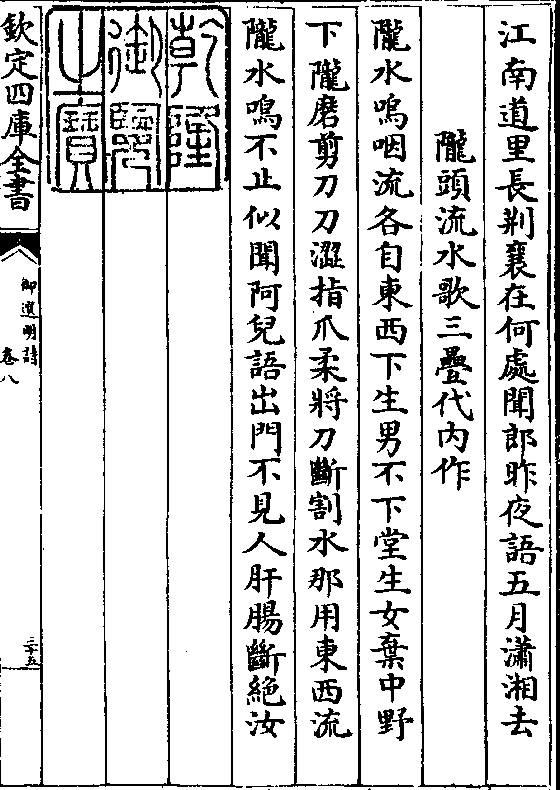 江南道里長荆襄在何處聞郎昨夜語五月瀟湘去
隴頭流水歌三疊代内作
隴水嗚咽流各自東西下生男不下堂生女棄中野
下隴磨剪刀刀澀指爪柔將刀斷割水那用東西流
隴水鳴不止似聞阿兒語出門不見人肝腸斷絶汝
乾隆御覽之寶
欽定四庫全書
御選明詩
卷八
三十五